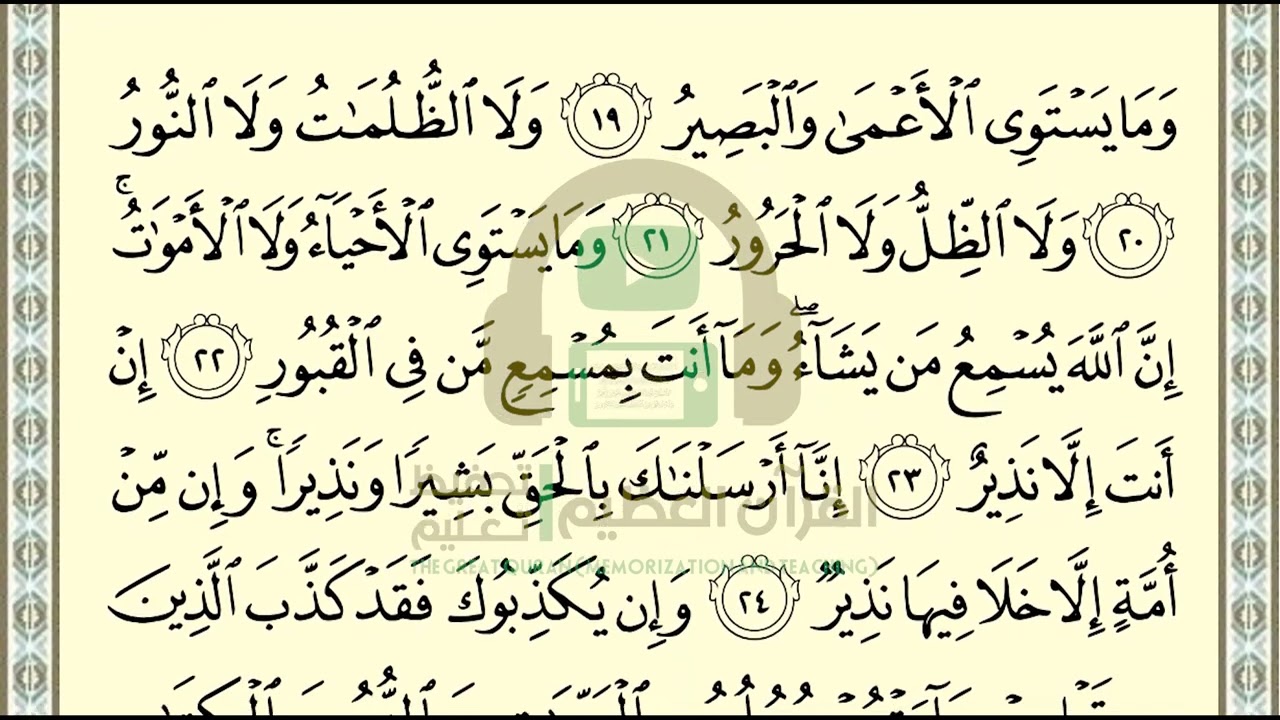 وَمَا يَسْتَوِى ٱلْأَعْمَىٰ وَٱلْبَصِيرُ ١٩ وَلَا ٱلظُّلُمَـٰتُ وَلَا ٱلنُّورُ
٢٠ وَلَا ٱلظِّلُّ وَلَا ٱلْحَرُورُ ٢١ وَمَا يَسْتَوِى ٱلْأَحْيَآءُ وَلَا ٱلْأَمْوَٰتُ ۚ
إِنَّ ٱللَّهَ يُسْمِعُ مَن يَشَآءُ ۖ وَمَآ أَنتَ بِمُسْمِعٍ مَّن فِى ٱلْقُبُورِ ٢٢ إِنْ
أَنتَ إِلَّا نَذِيرٌ ٢٣ إِنَّآ أَرْسَلْنَـٰكَ بِٱلْحَقِّ بَشِيرًا وَنَذِيرًا ۚ وَإِن مِّنْ
القرآن العظيم | تحفيظ
تعليم
THE GREAT QURAN (MEMORIZATION AND TEACHING)
أُمَّةٍ إِلَّا خَلَا فِيهَا نَذِيرٌ ٢٤ وَإِن يُكَذِّبُوكَ فَقَدْ كَذَّبَ ٱلَّذِينَ